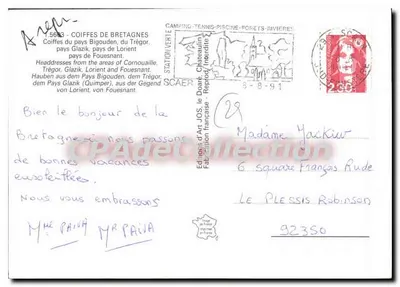 CAMPING-TENNIS-PISCINE-FORETS-RIVIERES
STATION VERTE
SCAER
8-8-91
5693 - COIFFES DE BRETAGNES
Coiffes du pays Bigouden, du Trégor,
pays Glazik, pays de Lorient
pays de Fouesnant.
Headdresses from the areas of Cornouaille,
Trégor, Glazik, Lorient and Fouesnant.
Hauben aus dem Pays Bigouden, dem Trégor,
dem Pays Glazik (Quimper), aus der Gegend
von Lorient, von Fouesnant.
Editions d'Art JOS, le Doaré, Châteaulin
Fabrication française - Reprod. Interdite
2.50
29
Bien le bonjour de la
Bretagne nous passons
de bonnes vacances
ensoleillées
Nous vous embrassons
Mme PAIVA Mr PAIVA
Madame Jackiw
6 square François Rude
LE PLESSIS Robinson
92350